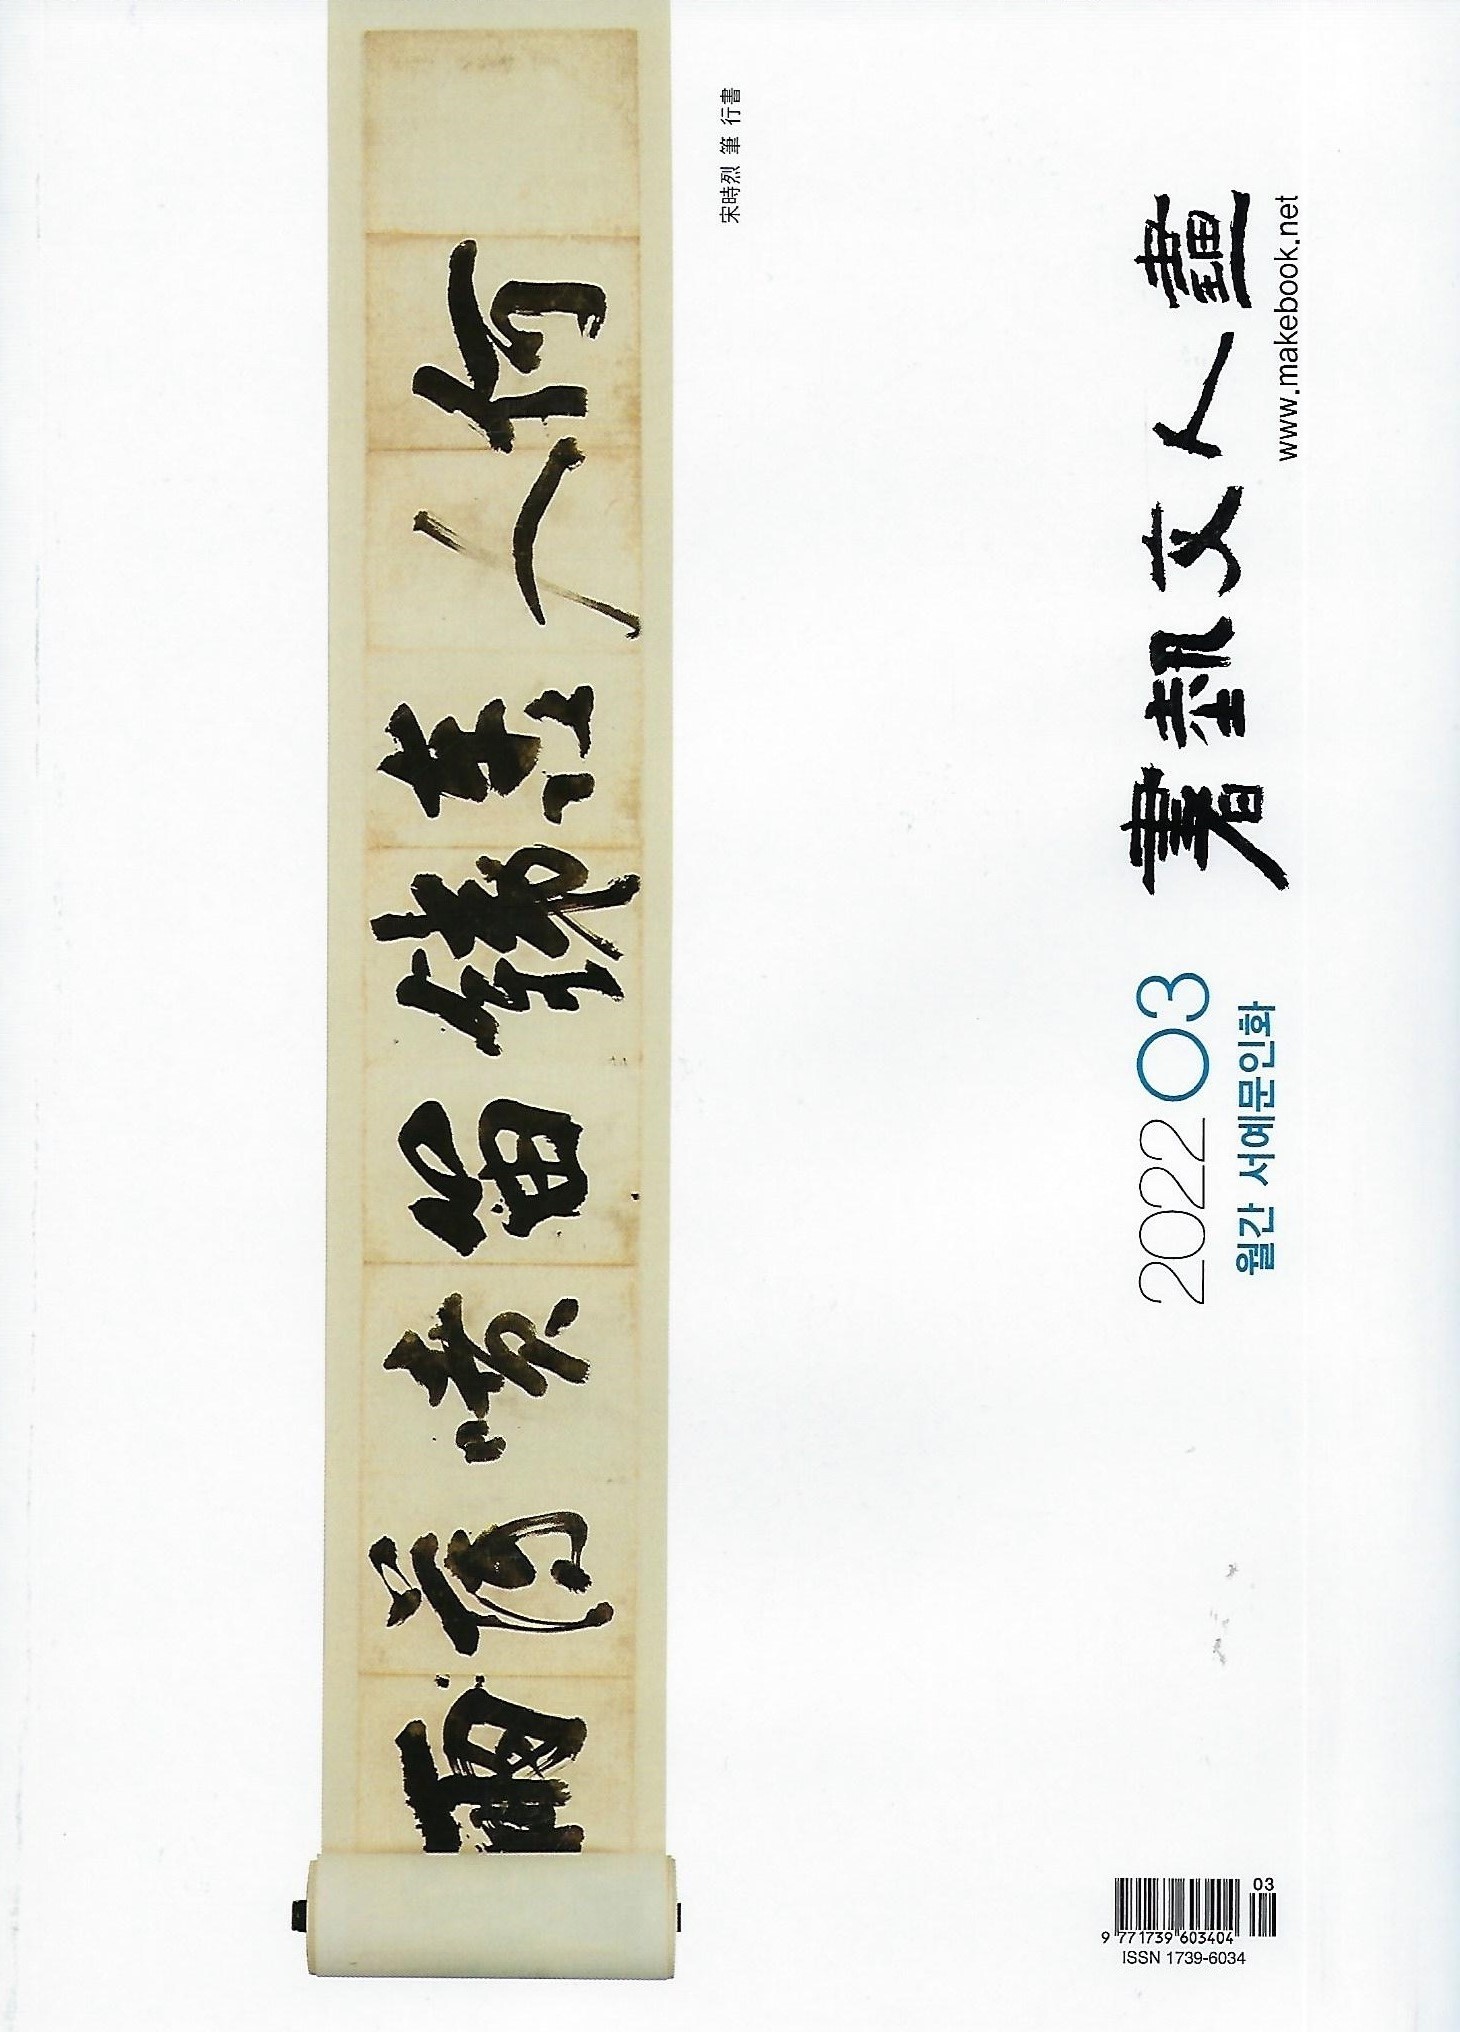 書藝文人畵
www.makebook.net
2022 03
월간 서예문인화
宋時烈 筆 行書
何人轟鐵笛噴薄兩
03
9 771739 603404
ISSN 1739-6034